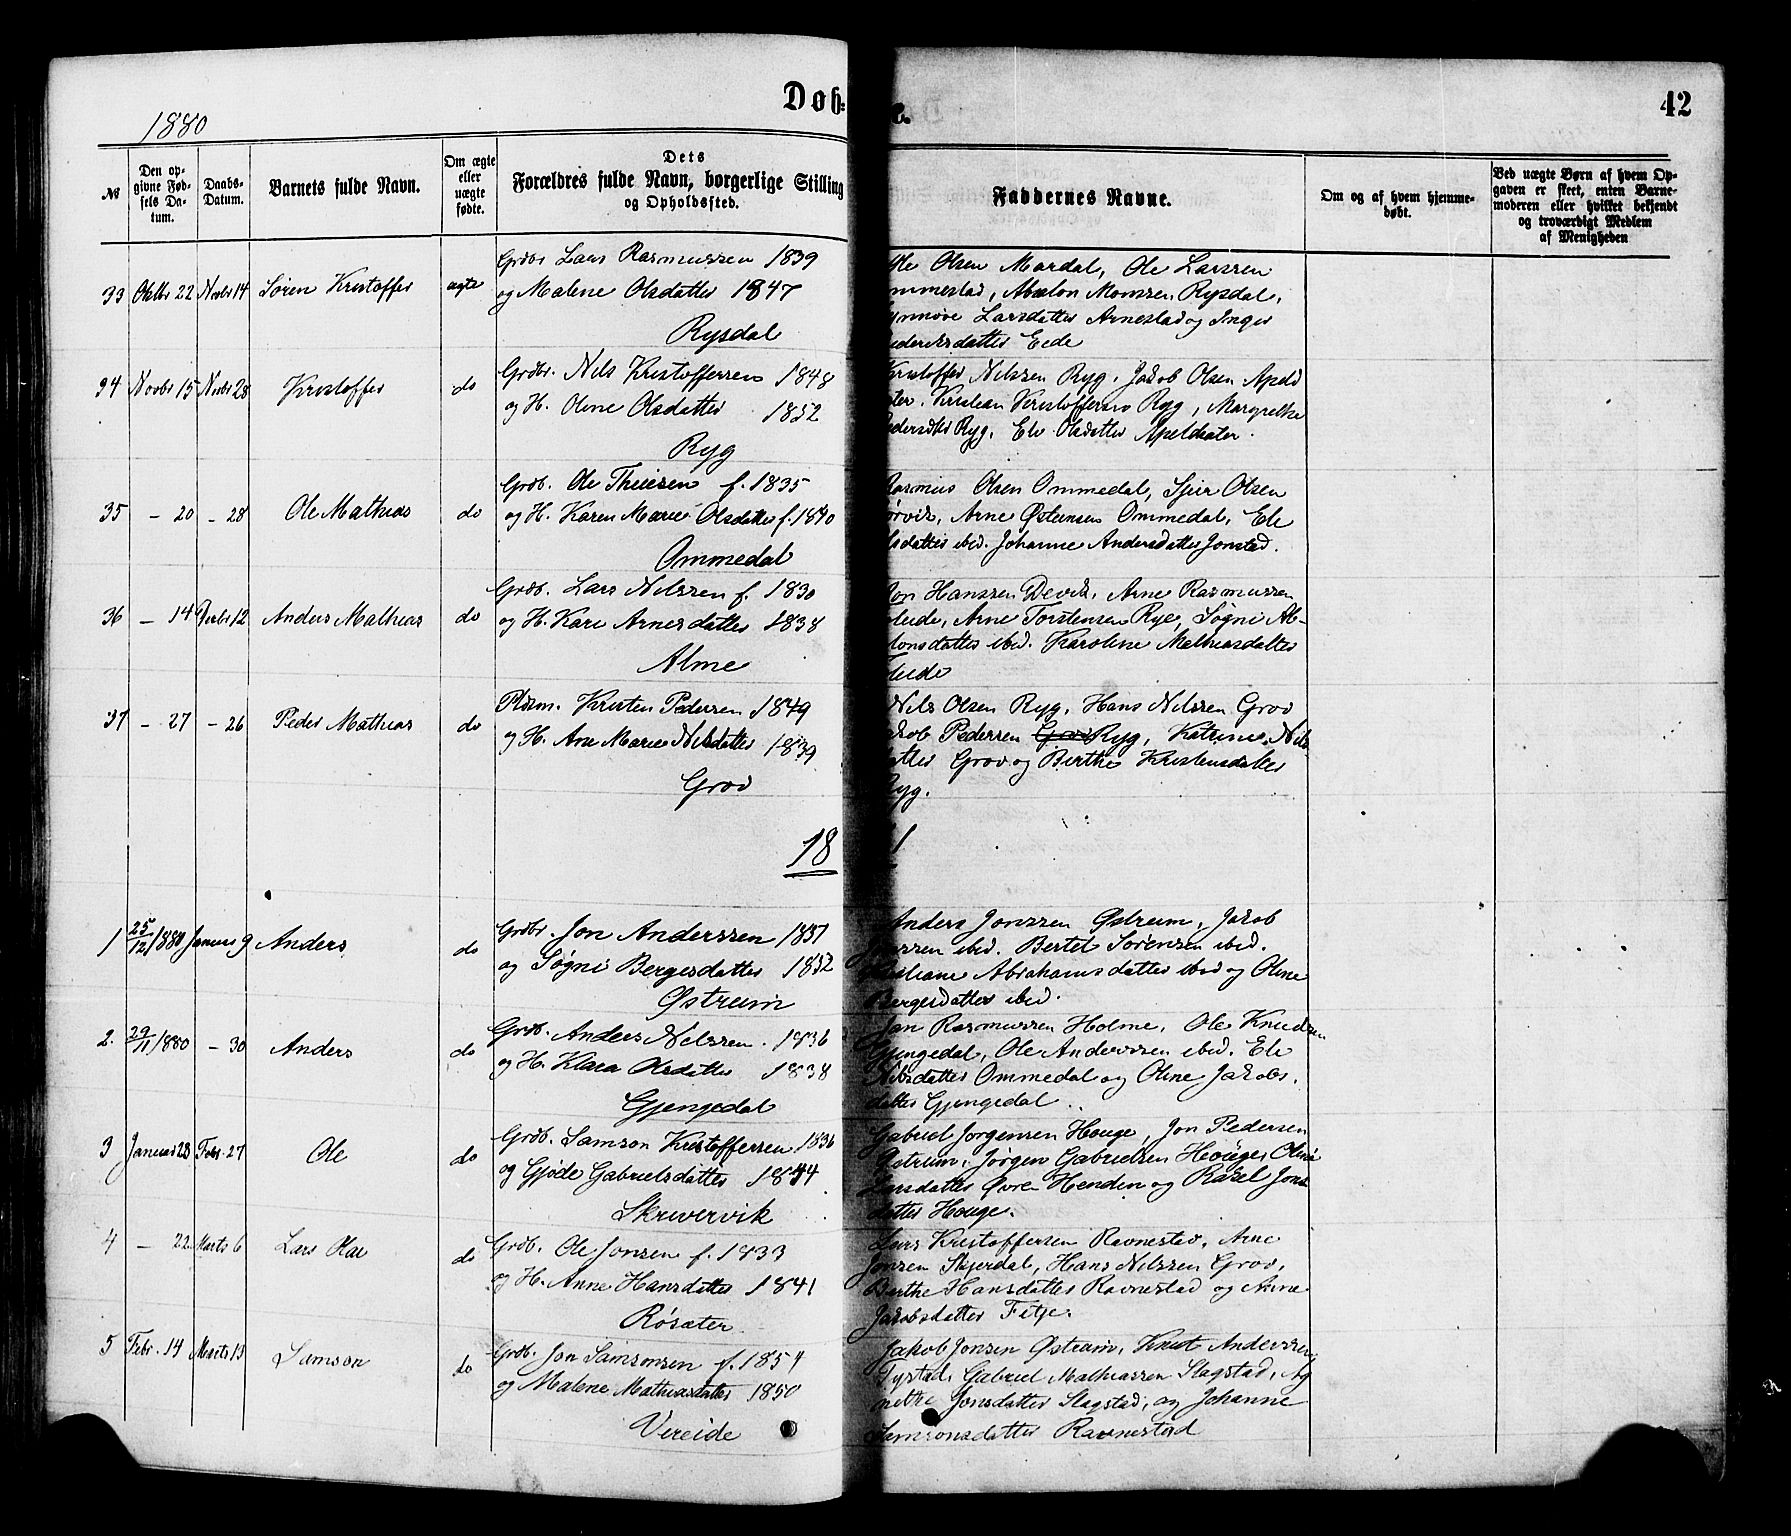 Dob=
e.
42
1880
№
Den op-
givne Fød-
sels Da-
tum.
Daabs-
Datum.
Barnets fulde Navn.
Om ægte
eller
uægte
fødte.
Dets
Forældres fulde Navn, borgerlige Stilling
og Opholdssted.
Faddernes Navne.
Om og af hvem hjemme-
døbt.
Ved uægte Børn af hvem Op-
gaven er skeet, enten Barne-
moderen eller hvilket bekjendt
og troværdigt Medlem
af Menigheden
33 Oktbr 22 Novbr 14 Søren Kristoffer ægte
Grdbr Lars Rasmussen 1839
og Malene Olsdatter 1847
Rysdal
Ole Olsen Mardal, Ole Larssen
mmestad, Absalon Monssen Rysdal,
ynnøve Larsdatter Arnestad og Inger
ederiksdatter Eide
34 Novbr 15 Novbr 28 Kristoffer do
Grdbr. Nils Kristoffersen 1848
og H. Oline Olsdatter 1852
Ryg
Kristoffer Nilssen Ryg, Jakob Olsen Apeld
ter, Kristian Kristoffersen Ryg, Margrethe
Pedersdtr Ryg, Eli Olsdatter Apeldsæter.
35 - 20 - 28 Ole Mathias do
Grdb. Ole Theiesen f. 1835
og H. Karen Marie Olsdatter f. 1840
Ommedal
Rasmus Olsen Ommedal, Sjur Olsen
ørvik, Arne Østensen Ommedal, Eli
lsdatter ibid. Johanne Andersdatter Jonstad.
36 - 14 Decbr 12 Anders Mathias do
Grdb. Lars Nilssen f. 1830
og H. Kari Arnesdatter 1838
Alme
Jon Hanssen Devik, Arne Rasmussen
leide, Arne Torstensen Rye, Søgni Ab-
lonsdatter ibid. Karoline Mathiasdatter
leide
37 - 27 - 26 Peder Mathias do
Pldsm. Kristen Pedersen 1849
og H. Ane Marie Nilsdatter 1839
Grov
Nils Olsen Ryg, Hans Nilssen Grov
akob Pedersen Grov Ryg, Katrine Nils
atter Grov og Berthe Kristensdatter
Ryg.
18
81
1 25/12 1880 Januar 9 Anders do
Grdbr. Jon Anderssen 1851
og Søgni Bergesdatter 1852
Østrum
Anders Jonssen Østrum, Jakob
Jonssen ibid. Bertel Sørensen ibid.
Kristiane Abrahamsdatter ibid og Oline
Bergesdatter ibid.
2. 29/11 1880 - 30 Anders do
Grdb. Anders Nilssen 1836
og H. Klara Olsdatter 1838
Gjengedal
Jan Rasmussen Holme, Ole Knudsen
Gjengedal, Ole Anderssen ibid. Eli
Nilsdatter Ommedal og Oline Jakobs-
datter Gjengedal
3 Januar 28 Febr. 27 Ole do
Grdb. Samson Kristoffersen 1836
og Gjøde Gabrielsdatter 1844
Skrivervik
Gabriel Jørgensen Houge, Jon Pedersen
Østrum, Jørgen Gabrielsen Houge, Oline
Larsdatter Øvre Henden og Rakel Jons
datter Houge.
4 - 22 Marts 6 Lars Olai do
Grdb. Ole Jonsen f. 1833
og H. Anne Hansdatter 1841
Røsæter
Lars Kristoffersen Ravnestad, Arne
Jonsen Skjerdal, Hans Nilssen Grov,
Berthe Hansdatter Ravnestad og Anne
Jakobsdatter Fitje.
5 Febr. 14 Marts 13 Samson do
Grdb. Jon Samsonsen f. 1854
og Malene Mathiasdatter 1850
Vereide
Jakob Jonsen Østrum, Knut Anderssen
Tystad, Gabriel Mathiassen Slagstad, Ag
nethe Jonsdatter Slagstad, og Johanne
Samsonsdatter Ravnestad